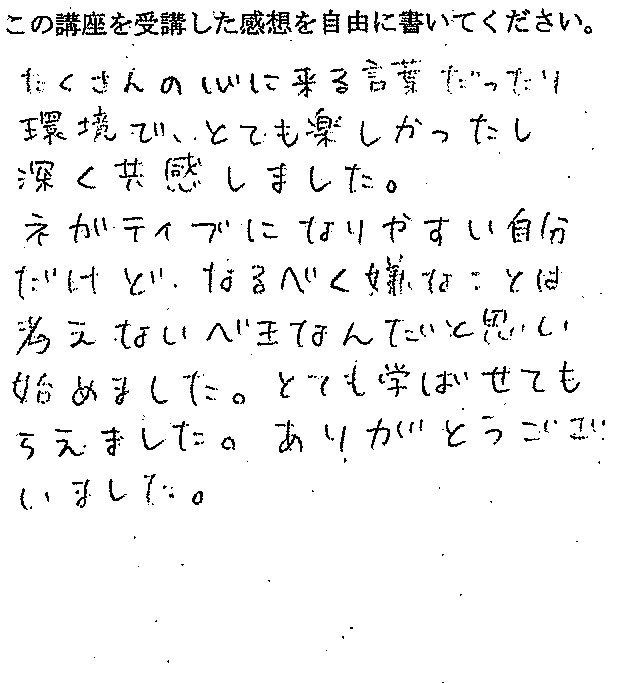 この講座を受講した感想を自由に書いてください。
たくさんの心に来る言葉だったり
環境で、とても楽しかったし
深く共感しました。
ネガティブになりやすい自分
だけど、なるべく嫌なことは
考えないべきなんだと思い
始めました。とても学ばせても
らえました。ありがとうござ
いました。